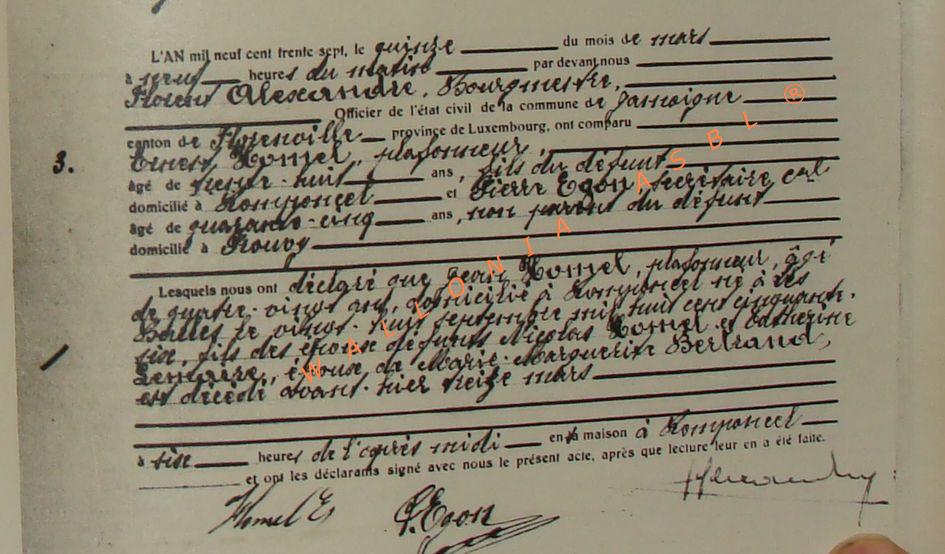 L'AN mil neuf cent trente sept, le quinze du mois de mars
à neuf heures du matin par devant nous
Florent Alexandre, Bourgmestre,
Officier de l'état civil de la commune de Jamoigne
canton de Florenville province de Luxembourg, ont comparu
3. Ernest Homel, plafonneur,
âgé de trente-huit ans, fils du défunt
domicilié à Romponcel et Pierre Egon, secrétaire cal
âgé de quarante-cinq ans, non parent du défunt
domicilié à Rouvoy
Lesquels nous ont déclaré que Jean Homel, plafonneur, âgé
de quatre-vingt ans, domicilié à Romponcel né à les
Bulles le vingt-huit septembre mil huit cent cinquante-
six, fils des époux défunts Nicolas Homel et Catherine
Lemaire, époux de Marie-Marguerite Bertrand,
est décédé avant-hier treize mars
à six heures de l'après midi en sa maison à Romponcel
et ont les déclarants signé avec nous le présent acte, après que lecture leur en a été faite.
Homel E P. Egon
WALLONIA ASBL ®